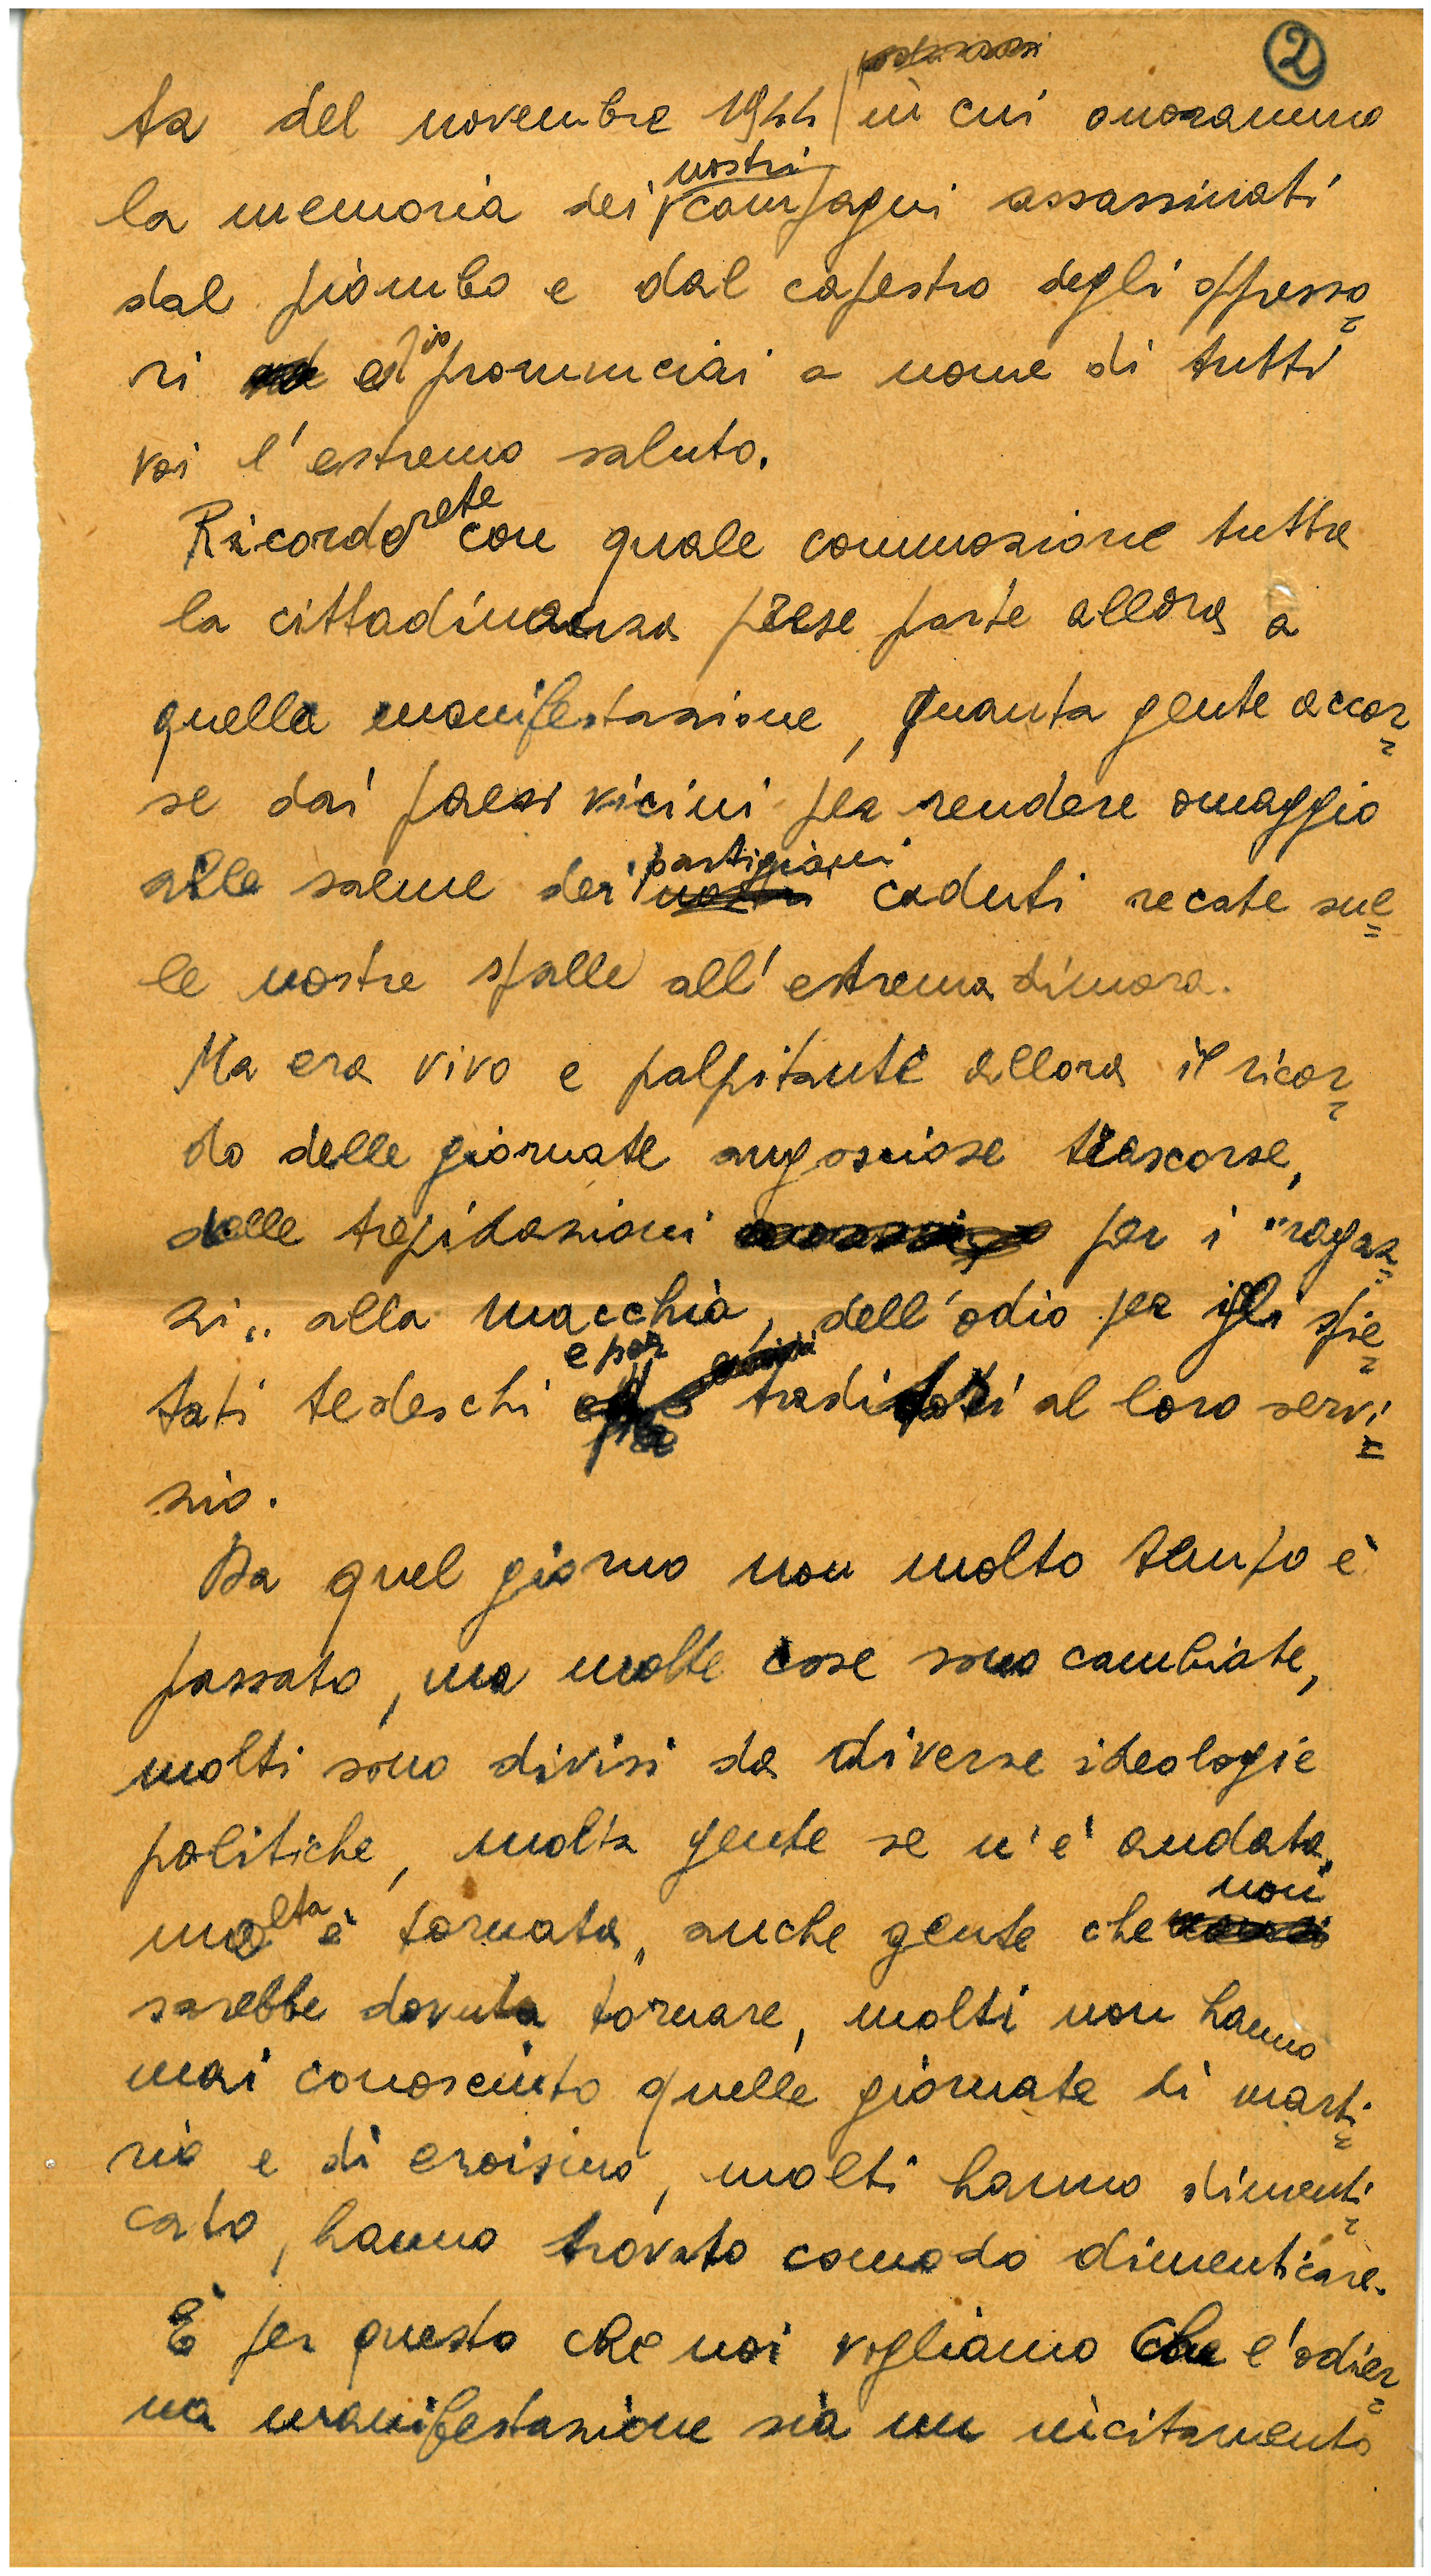 2
ta del novembre 1944 in cui onorammo
nostri
la memoria dei compagni assassinati
dal piombo e dal capestro degli oppresso=
ri ed io pronunciai a nome di tutti
voi l'estremo saluto.
Ricorderete con quale commozione tutta
la cittadinanza prese parte allora a
quella manifestazione, quanta gente accor=
se dai paesi vicini per rendere omaggio
partigiani
alle salme dei caduti recate sul=
le nostre spalle all'estrema dimora.
Ma era vivo e palpitante allora il ricor=
do delle giornate angosciose trascorse,
delle trepidazioni per i "ragaz=
zi" alla macchia, dell'odio per gli spie=
e per
tati tedeschi traditori al loro servi=
zio.
Da quel giorno non molto tempo è
passato, ma molte cose sono cambiate,
molti sono divisi da diverse ideologie
politiche, molta gente se n'è andata,
non
molta è tornata, anche gente che
sarebbe dovuta tornare, molti non hanno
mai conosciuto quelle giornate di marti=
rio e di eroismo, molti hanno dimenti=
cato, hanno trovato comodo dimenticare.
È per questo che noi vogliamo che l'odier=
na manifestazione sia un incitamento